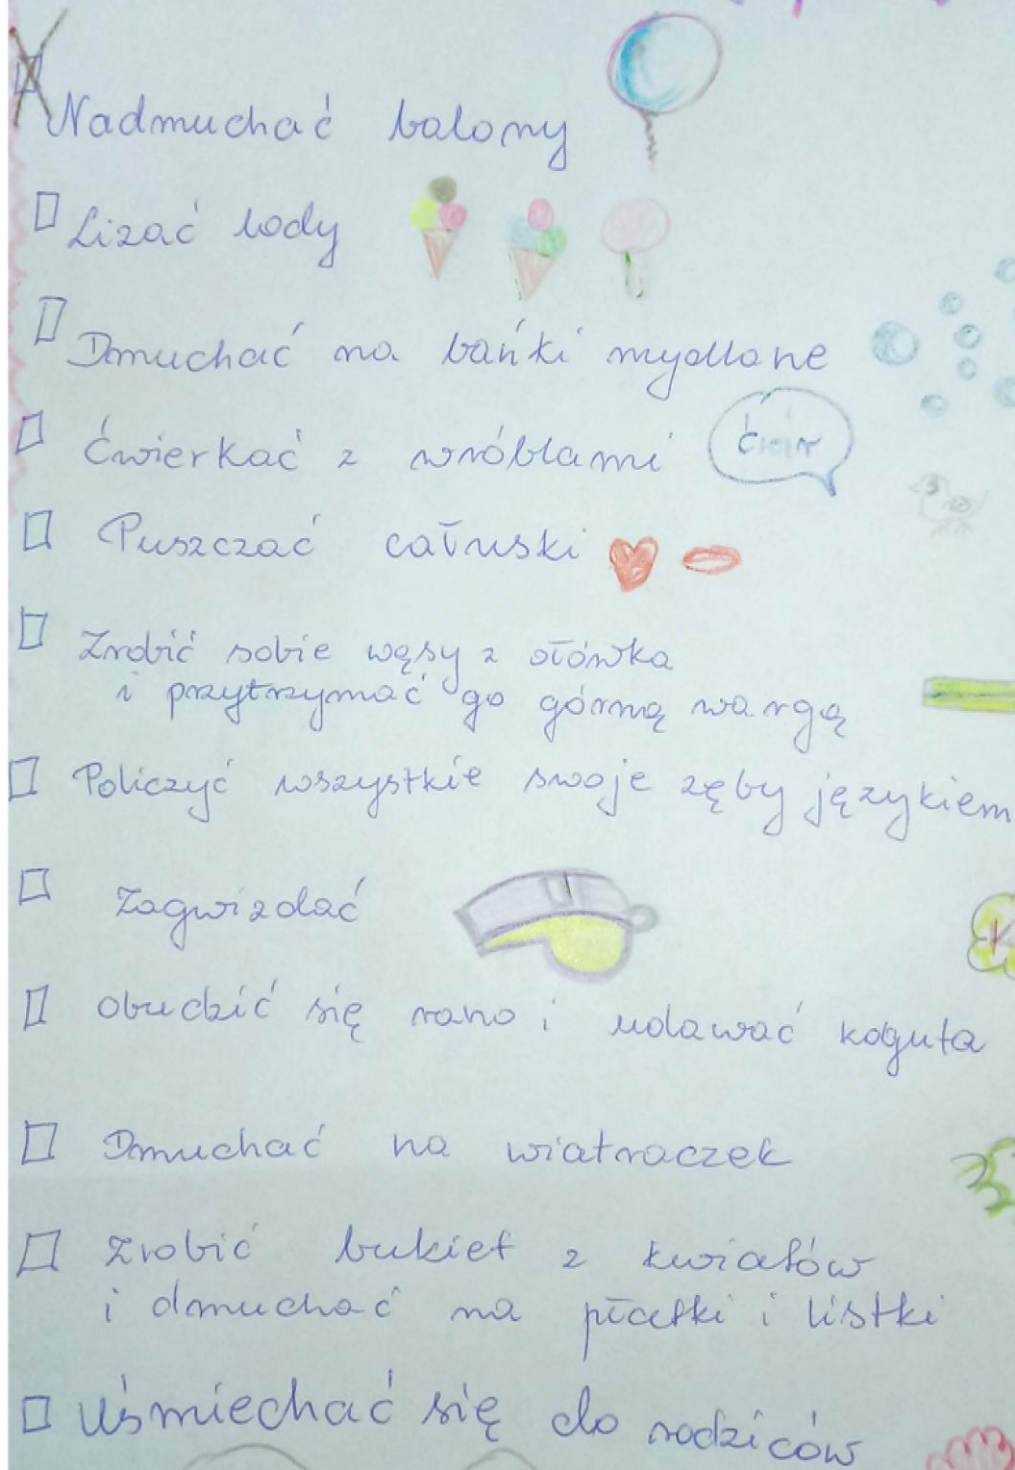 Nadmuchać balony
Lizać lody
Dmuchać na bańki mydlane
Ćwierkać z wróblami
Ćwir
Puszczać całuski
Zrobić sobie wąsy z ołówka
i przytrzymać go górną wargą
Policzyć wszystkie swoje zęby językiem
Zagwizdać
Obudzić się rano i udawać koguta
Dmuchać na wiatraczek
Zrobić bukiet z kwiatów
i dmuchać na płatki i listki
Uśmiechać się do rodziców